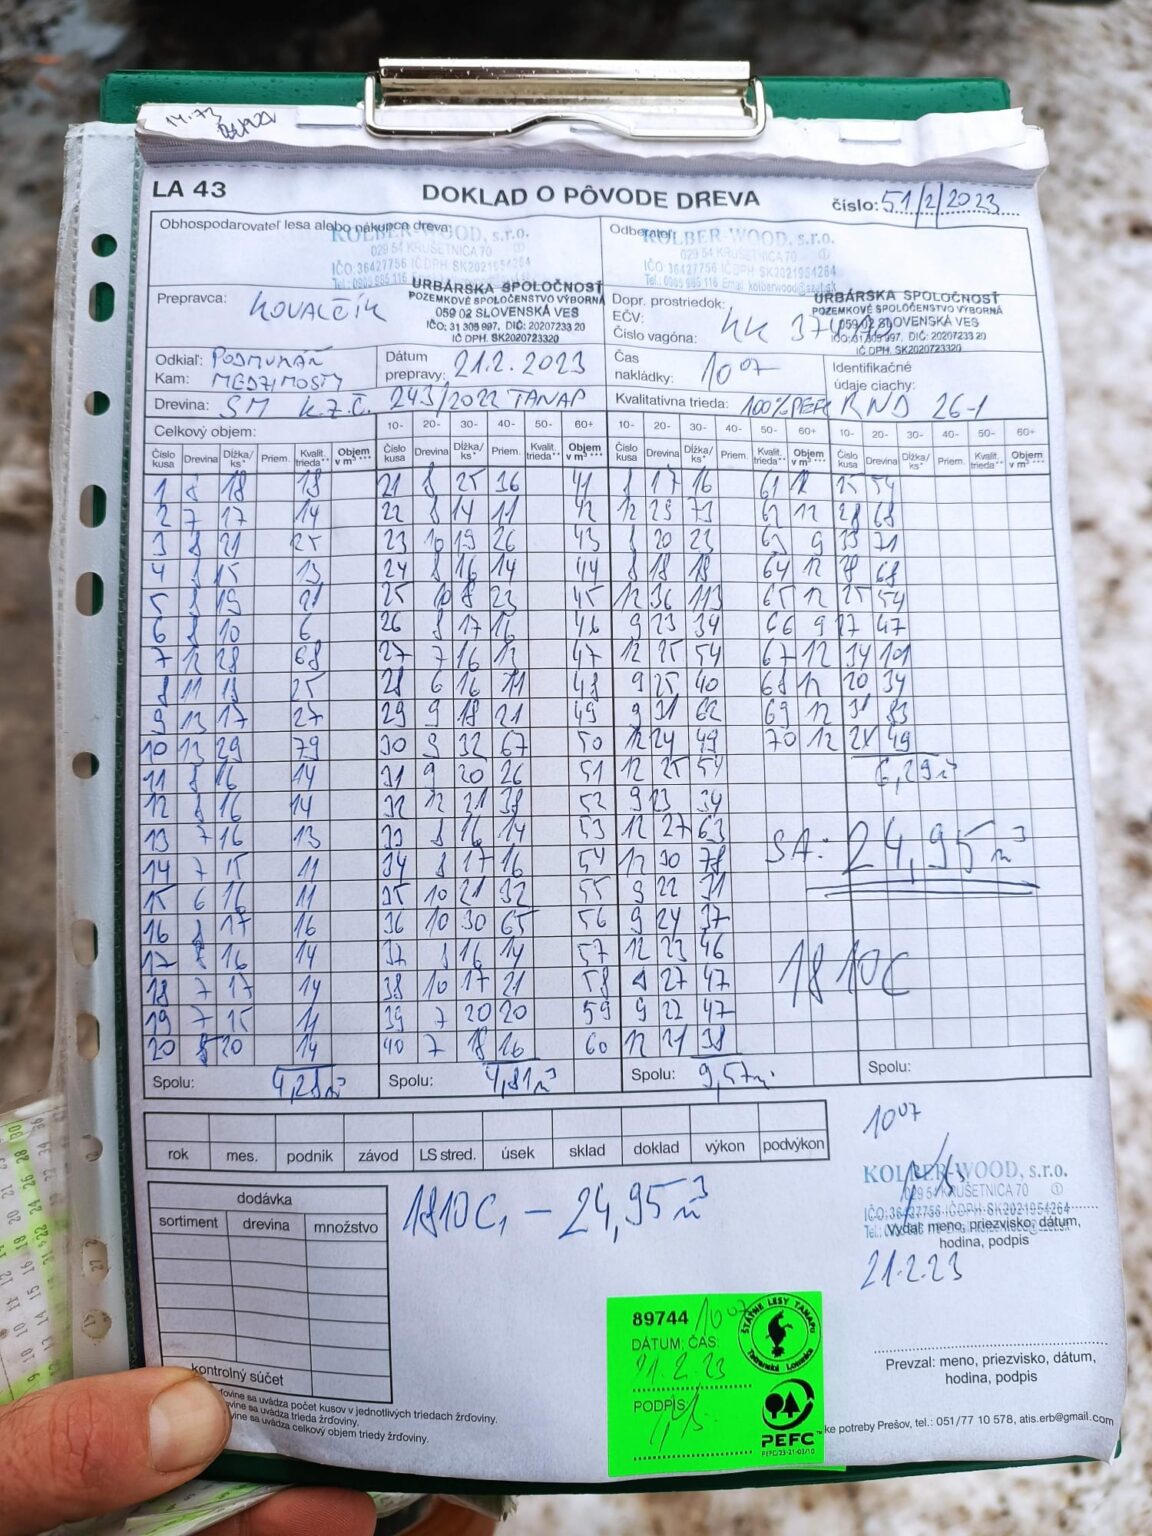 14.73
LA 43
DOKLAD O PÔVODE DREVA
číslo: 51/2/2023
Obhospodarovateľ lesa alebo nákupca dreva:
KOLBER-WOOD, s.r.o.
029 54 KRUŠETNICA 70
IČO: 36427756 IČ DPH SK2021954264
URBÁRSKA SPOLOČNOSŤ
POZEMKOVÉ SPOLOČENSTVO VÝBORNÁ
059 02 SLOVENSKÁ VES
IČO: 31 305 997, DIČ: 20207233 20
IČ DPH. SK2020723320
Odberateľ:
KOLBER-WOOD, s.r.o.
029 54 KRUŠETNICA 70
IČO: 36427756 IČ DPH SK2021954264
URBÁRSKA SPOLOČNOSŤ
POZEMKOVÉ SPOLOČENSTVO VÝBORNÁ
059 02 SLOVENSKÁ VES
IČ DPH. SK2020723320
Prepravca: KOVALČÍK
Dopr. prostriedok:
EČV:
Číslo vagóna:
Odkiaľ:
Kam: MEDZIMOSTY
Dátum
prepravy: 21.2.2023
Čas
nakládky: 10 07
Identifikačné
údaje ciachy:
Drevina: SM K.Z.Č. 243/2022 TANAP
Kvalitatívna trieda: 100% PEFC RND 26-1
Celkový objem:
10- 20- 30- 40- 50- 60+ 10- 20- 30- 40- 50- 60+ 10- 20- 30- 40- 50- 60+
Číslo kusa Drevina Dĺžka/ ks* Priem. Kvalit. trieda** Objem v m³ ***
Číslo kusa Drevina Dĺžka/ ks* Priem. Kvalit. trieda** Objem v m³ ***
Číslo kusa Drevina Dĺžka/ ks* Priem. Kvalit. trieda** Objem v m³ ***
Číslo kusa Drevina Dĺžka/ ks* Priem. Kvalit. trieda** Objem v m³ ***
1 8 18 18 21 8 25 36 41 8 17 16 61 12 25 54
2 7 17 14 22 8 14 11 42 12 29 73 62 12 28 68
3 8 21 25 23 10 19 26 43 8 20 23 63 9 33 71
4 8 15 13 24 8 16 14 44 8 18 18 64 12 28 68
5 8 19 21 25 10 18 23 45 12 36 113 65 12 25 54
6 8 10 6 26 8 17 16 46 9 23 34 66 9 27 47
7 12 28 68 27 7 16 13 47 12 25 54 67 12 34 101
8 11 18 25 28 6 16 11 48 9 25 40 68 12 20 34
9 13 17 27 29 9 18 21 49 9 31 62 69 12 31 83
10 13 29 79 30 9 32 67 50 12 24 49 70 12 24 49
11 8 16 14 31 9 20 26 51 12 25 54 6,29 m³
12 8 16 14 32 12 21 38 52 9 23 34
13 7 16 13 33 8 16 14 53 12 27 63
SA: 24,95 m³
14 7 15 11 34 8 17 16 54 12 30 78
15 6 16 11 35 10 21 32 55 9 22 31
16 8 17 16 36 10 30 65 56 9 24 37
17 8 16 14 37 8 16 14 57 12 23 46
1810C
18 7 17 14 38 10 17 21 58 27 47
19 7 15 11 39 7 20 20 59 9 22 47
20 8 20 14 40 7 18 16 60 12 21 38
Spolu: 4,28 m³ Spolu: 4,81 m³ Spolu: 9,57 m³ Spolu:
rok mes. podnik závod LS stred. úsek sklad doklad výkon podvýkon
10 07
dodávka
sortiment drevina množstvo
kontrolný súčet
1810C, – 24,95 m³
KOLBER-WOOD, s.r.o.
029 54 KRUŠETNICA 70
IČO: 36427756 IČ DPH SK2021954264
Vydal: meno, priezvisko, dátum,
hodina, podpis
21.2.23
89744 10 07
DÁTUM; ČAS:
21.2.23
PODPIS:
ŠTÁTNE LESY TANAPu
Tatranská Lomnica
PEFC
PEFC/23-21-03/10
Prevzal: meno, priezvisko, dátum,
hodina, podpis
sa uvádza počet kusov v jednotlivých triedach žrďoviny.
sa uvádza trieda žrďoviny.
sa uvádza celkový objem triedy žrďoviny.
ke potreby Prešov, tel.: 051/77 10 578, atis.erb@gmail.com